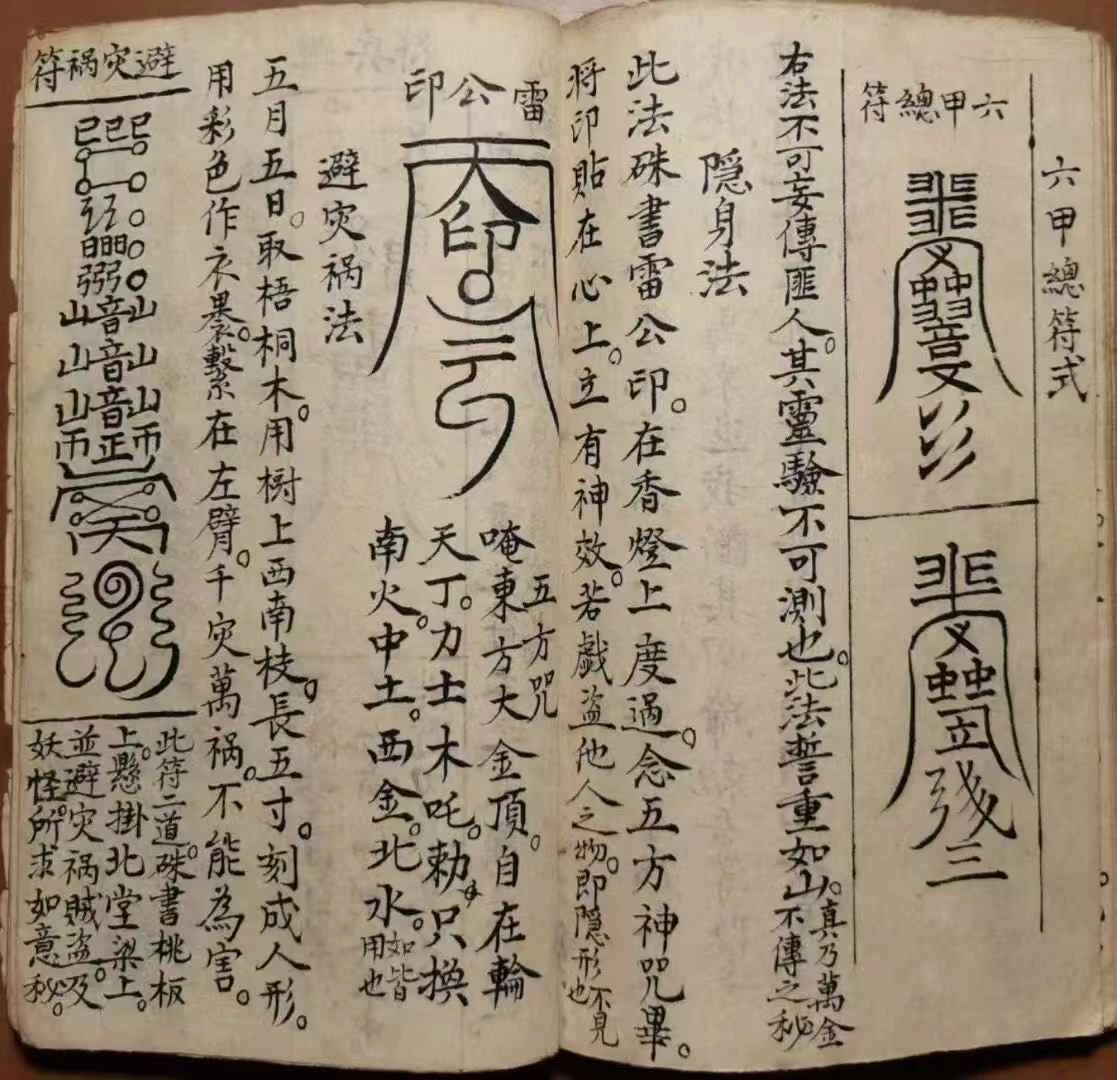 六甲總符式
六甲總符
右法不可妄傳匪人。其靈驗不可測也。此法誓重如山。真乃萬金
不傳之秘
隱身法
此法硃書雷公印。在香燈上度過。念五方神咒畢。
將印貼在心上。立有神效。若戲盜他人之物。即隱形不見
也
雷公印
五方咒
唵東方大金頂。自在輪
天丁。力士木吒。勅。只換
南火。中土。西金。北水。如皆
用也
避灾禍法
五月五日。取梧桐木。用樹上西南枝。長五寸。刻成人形。
用彩色作衣裹。繫在左臂。千灾萬禍。不能為害。
避灾禍符
此符二道。硃書桃板
上。懸掛北堂梁上。
並避灾禍賊盜。及
妖怪。所求如意秘。